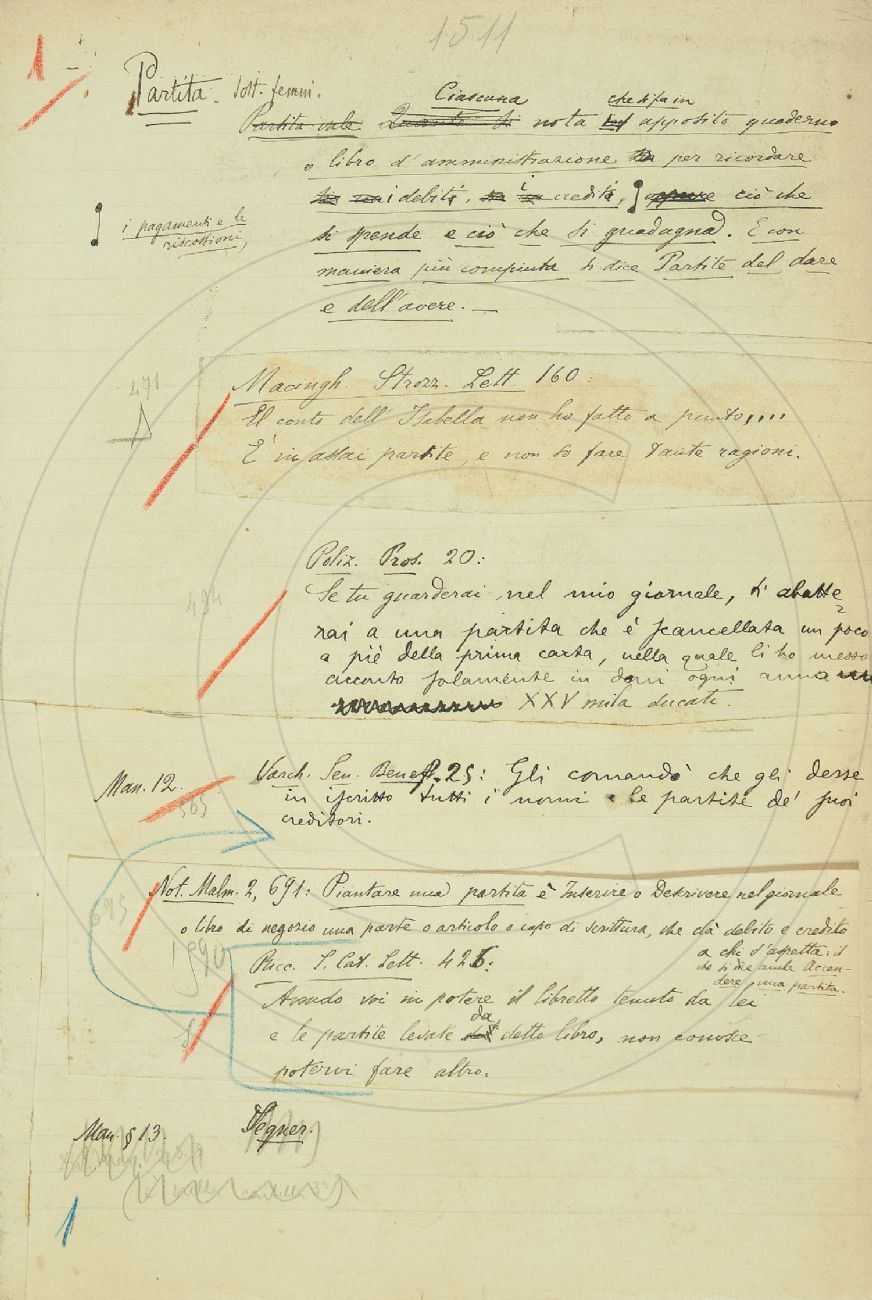 1511
1
Partita. Sost. femm.
Ciascuna che si fa in
Partita vale Quanto si nota apposito quaderno
o libro d'amministrazione per ricordare
i debiti, i crediti, oppure ciò che
i pagamenti e le
riscossioni,
si spende e ciò che si guadagna. E con
maniera più compiuta si dice Partite del dare
e dell'avere. —
471
Macingh. Strozz. Lett. 160:
El conto dell'Isabella non ho fatto a punto....
È in assai partite, e non so fare tante ragioni.
494
Poliz. Pros. 20:
Se tu guarderai nel mio giornale, ti abatte
rai a una partita che è scancellata un poco
a piè della prima carta, nella quale li ho messo
acconto solamente in doni ogni anno
XXV mila ducati.
Man. 12.
565
Varch. Sen. Benef. 25: Gli comandò che gli desse
in iscritto tutti i nomi e le partite de' suoi
creditori.
695
Not. Malm. 2, 691: Piantare una partita è Inserire o Descrivere nel giornale
o libro di negozio una parte o articolo o capo di scrittura, che dà debito e credito
a chi s'aspetta; il
che si dice anche Accen-
dere una partita.
1590
Ricc. S. Cat. Lett. 426:
Avendo voi in potere il libretto tenuto da lei
e le partite levate da detto libro, non conosce
potervi fare altro.
Man. § 13.
Segner.
1